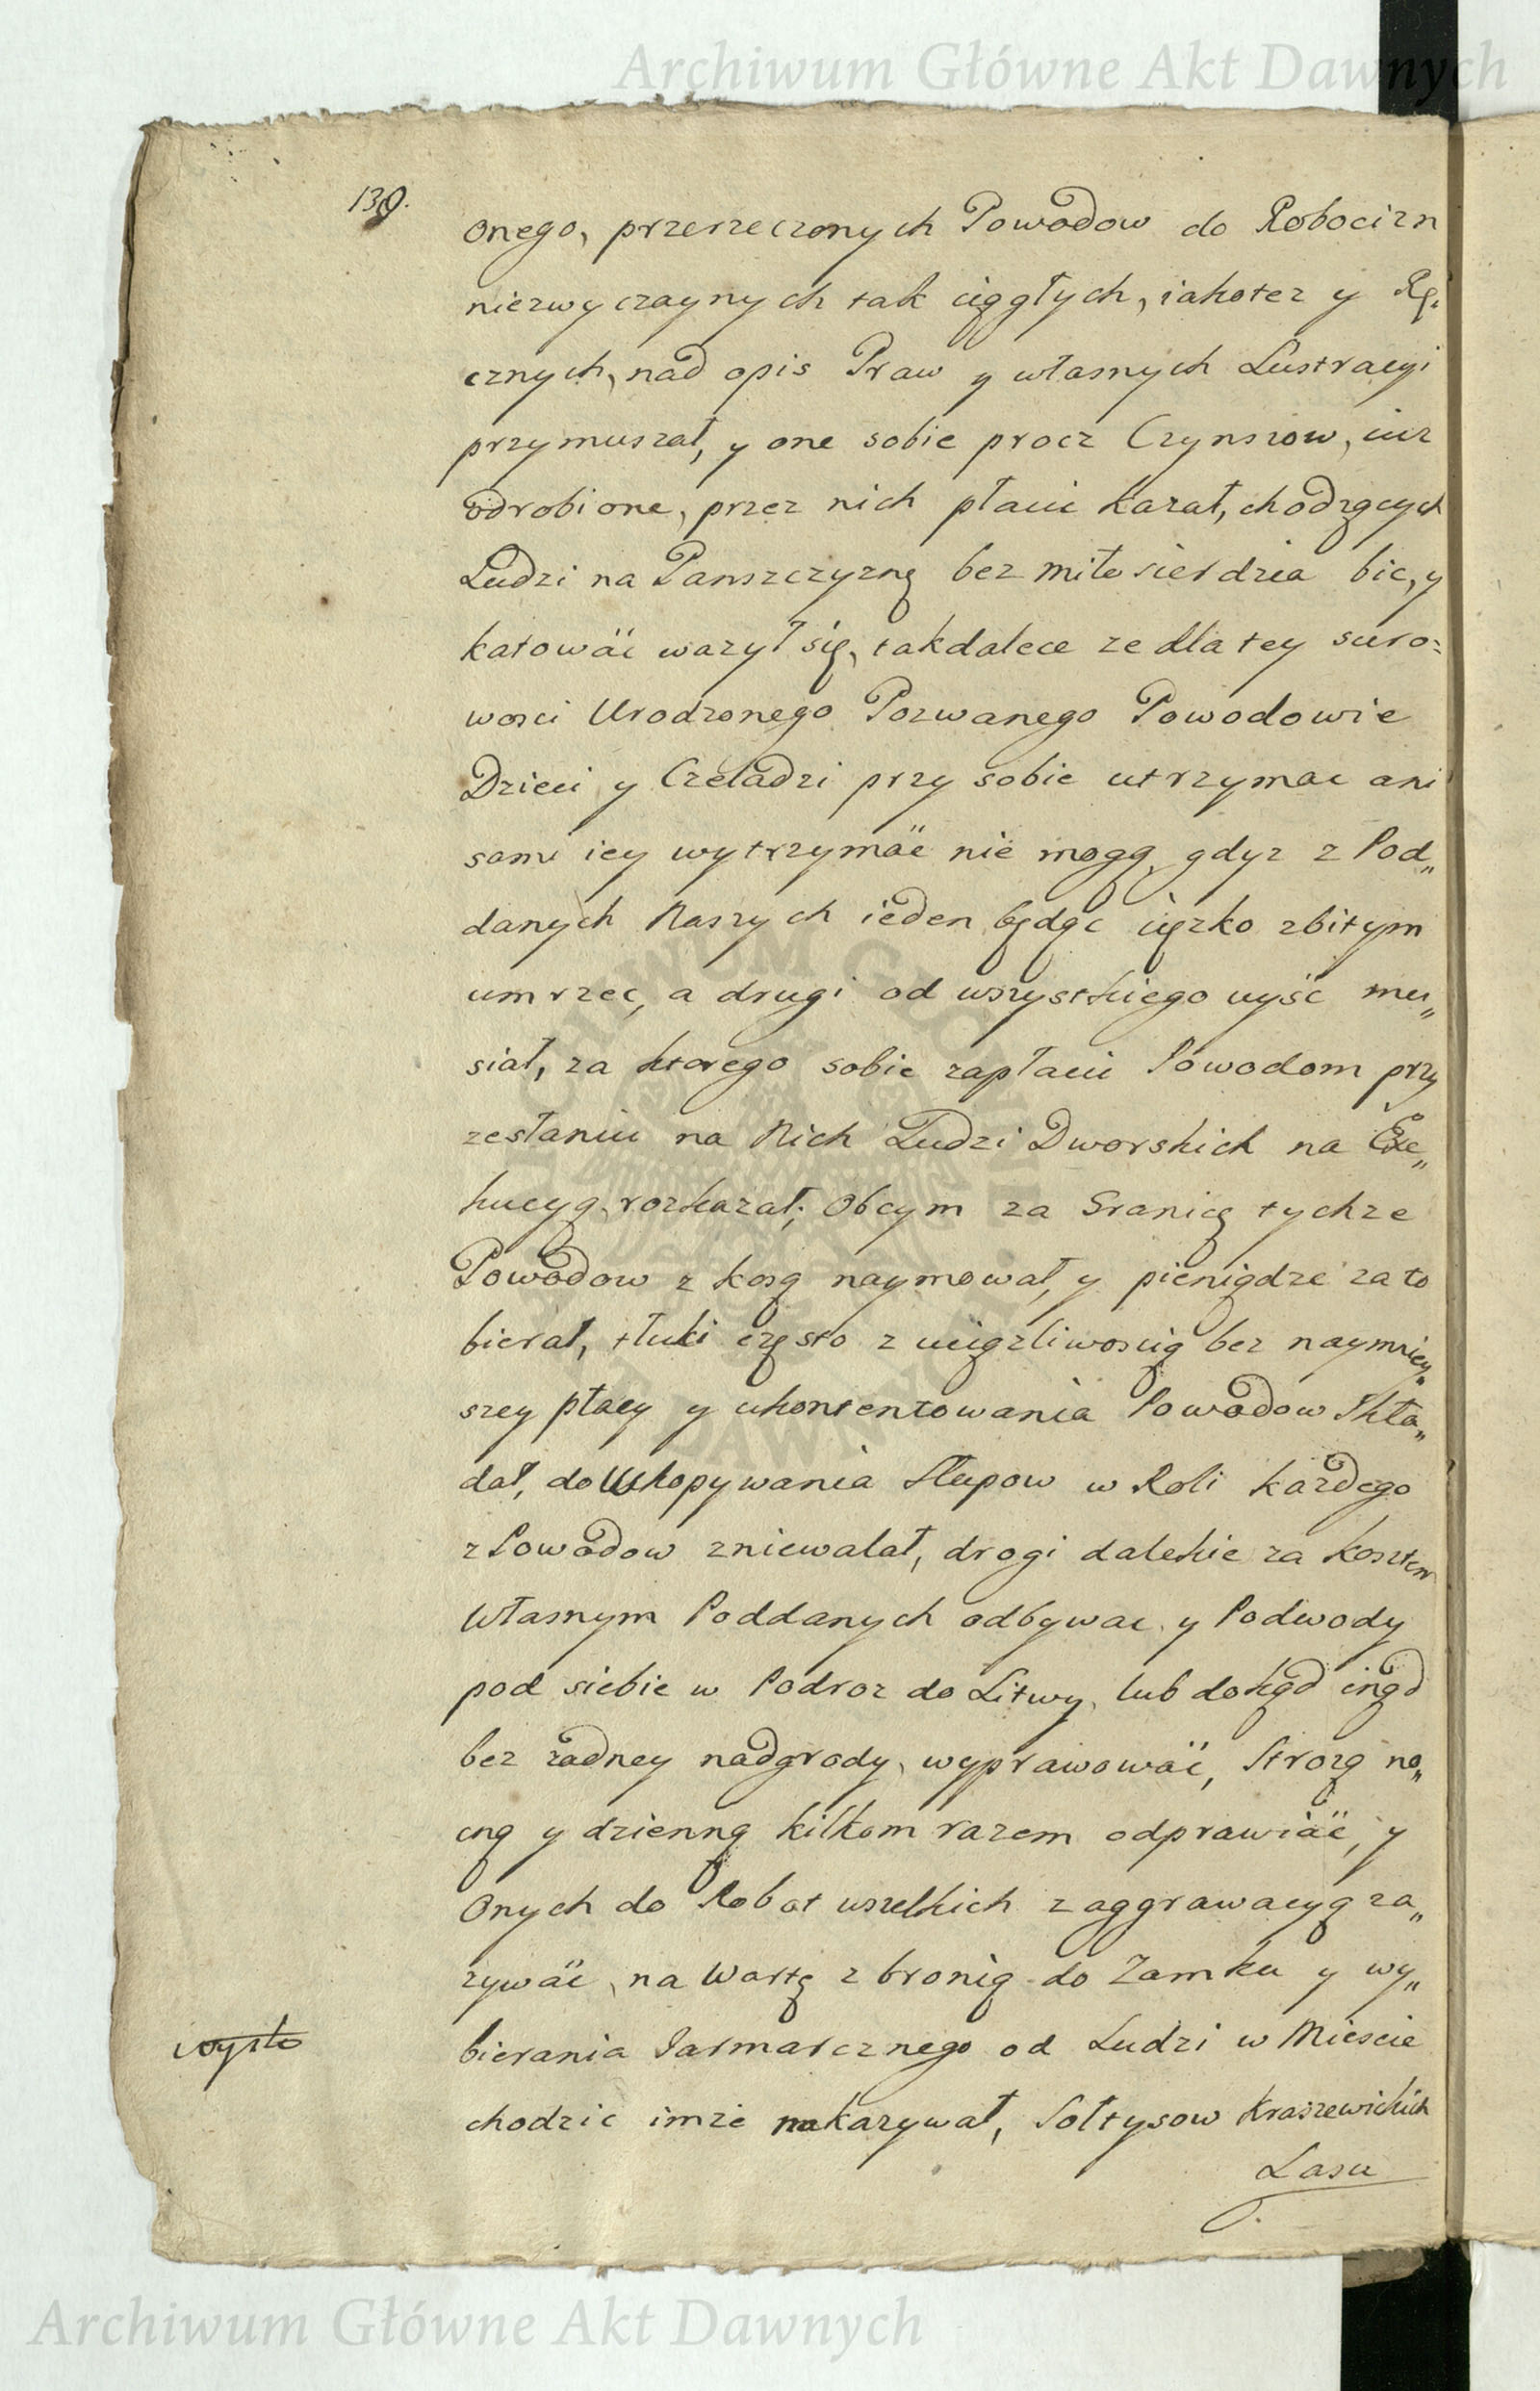 Archiwum Główne Akt Dawnych
139.
onego, przerzeczonych Powodow do Robocizn
niezwyczaynych tak ciągłych, iakotez y Rę„
cznych, nad opis Praw y własnych Lustracyi
przymuszał, y one sobie procz Czynszow, iuz
odrobione, przez nich płacic kazał, chodzących
Ludzi na Panszczyznę bez miłosierdzia bic, y
katowac wazył się, takdalece ze dla tey suro=
wosci Urodzonego Pozwanego Powodowie
Dzieci y Czeladzi przy sobie utrzymac ani
sami iey wytrzymac nie mogą, gdyz z Pod„
danych Naszych ieden będąc cięzko zbitym
umrzec, a drugi od wszystkiego uyść mu„
siał, za ktorego sobie zapłacic Powodom przy
zesłaniu na Nich Ludzi Dworskich na Exe„
kucyą rozkazał; Obcym za Granicę tychze
Powodow z kosą naymował, y pieniądze za to
bierał, tłuki często z uciązliwoscią bez naymniey„
szey płacy y ukontentowania Powodow Skła„
dał, do Wkopywania Słupow w Roli kazdego
z Powodow zniewalał, drogi dalekie za kosztem
Własnym Poddanych odbywac y Podwody
pod siebie w Podroz do Litwy, lub dokąd inąd
bez zadney nadgrody, wyprawowac, Strozą no„
cną y dzienną kilkom razem odprawiac, y
Onych do Robot wszelkich z aggrawacyą za„
zywac, na Wartę z bronią do Zamku y wy„
bierania Jarmarcznego od Ludzi w Miescie
chodzic imze nakazywał, Sołtysow Kraszewickich
Lasu
wyszło
Archiwum Główne Akt Dawnych